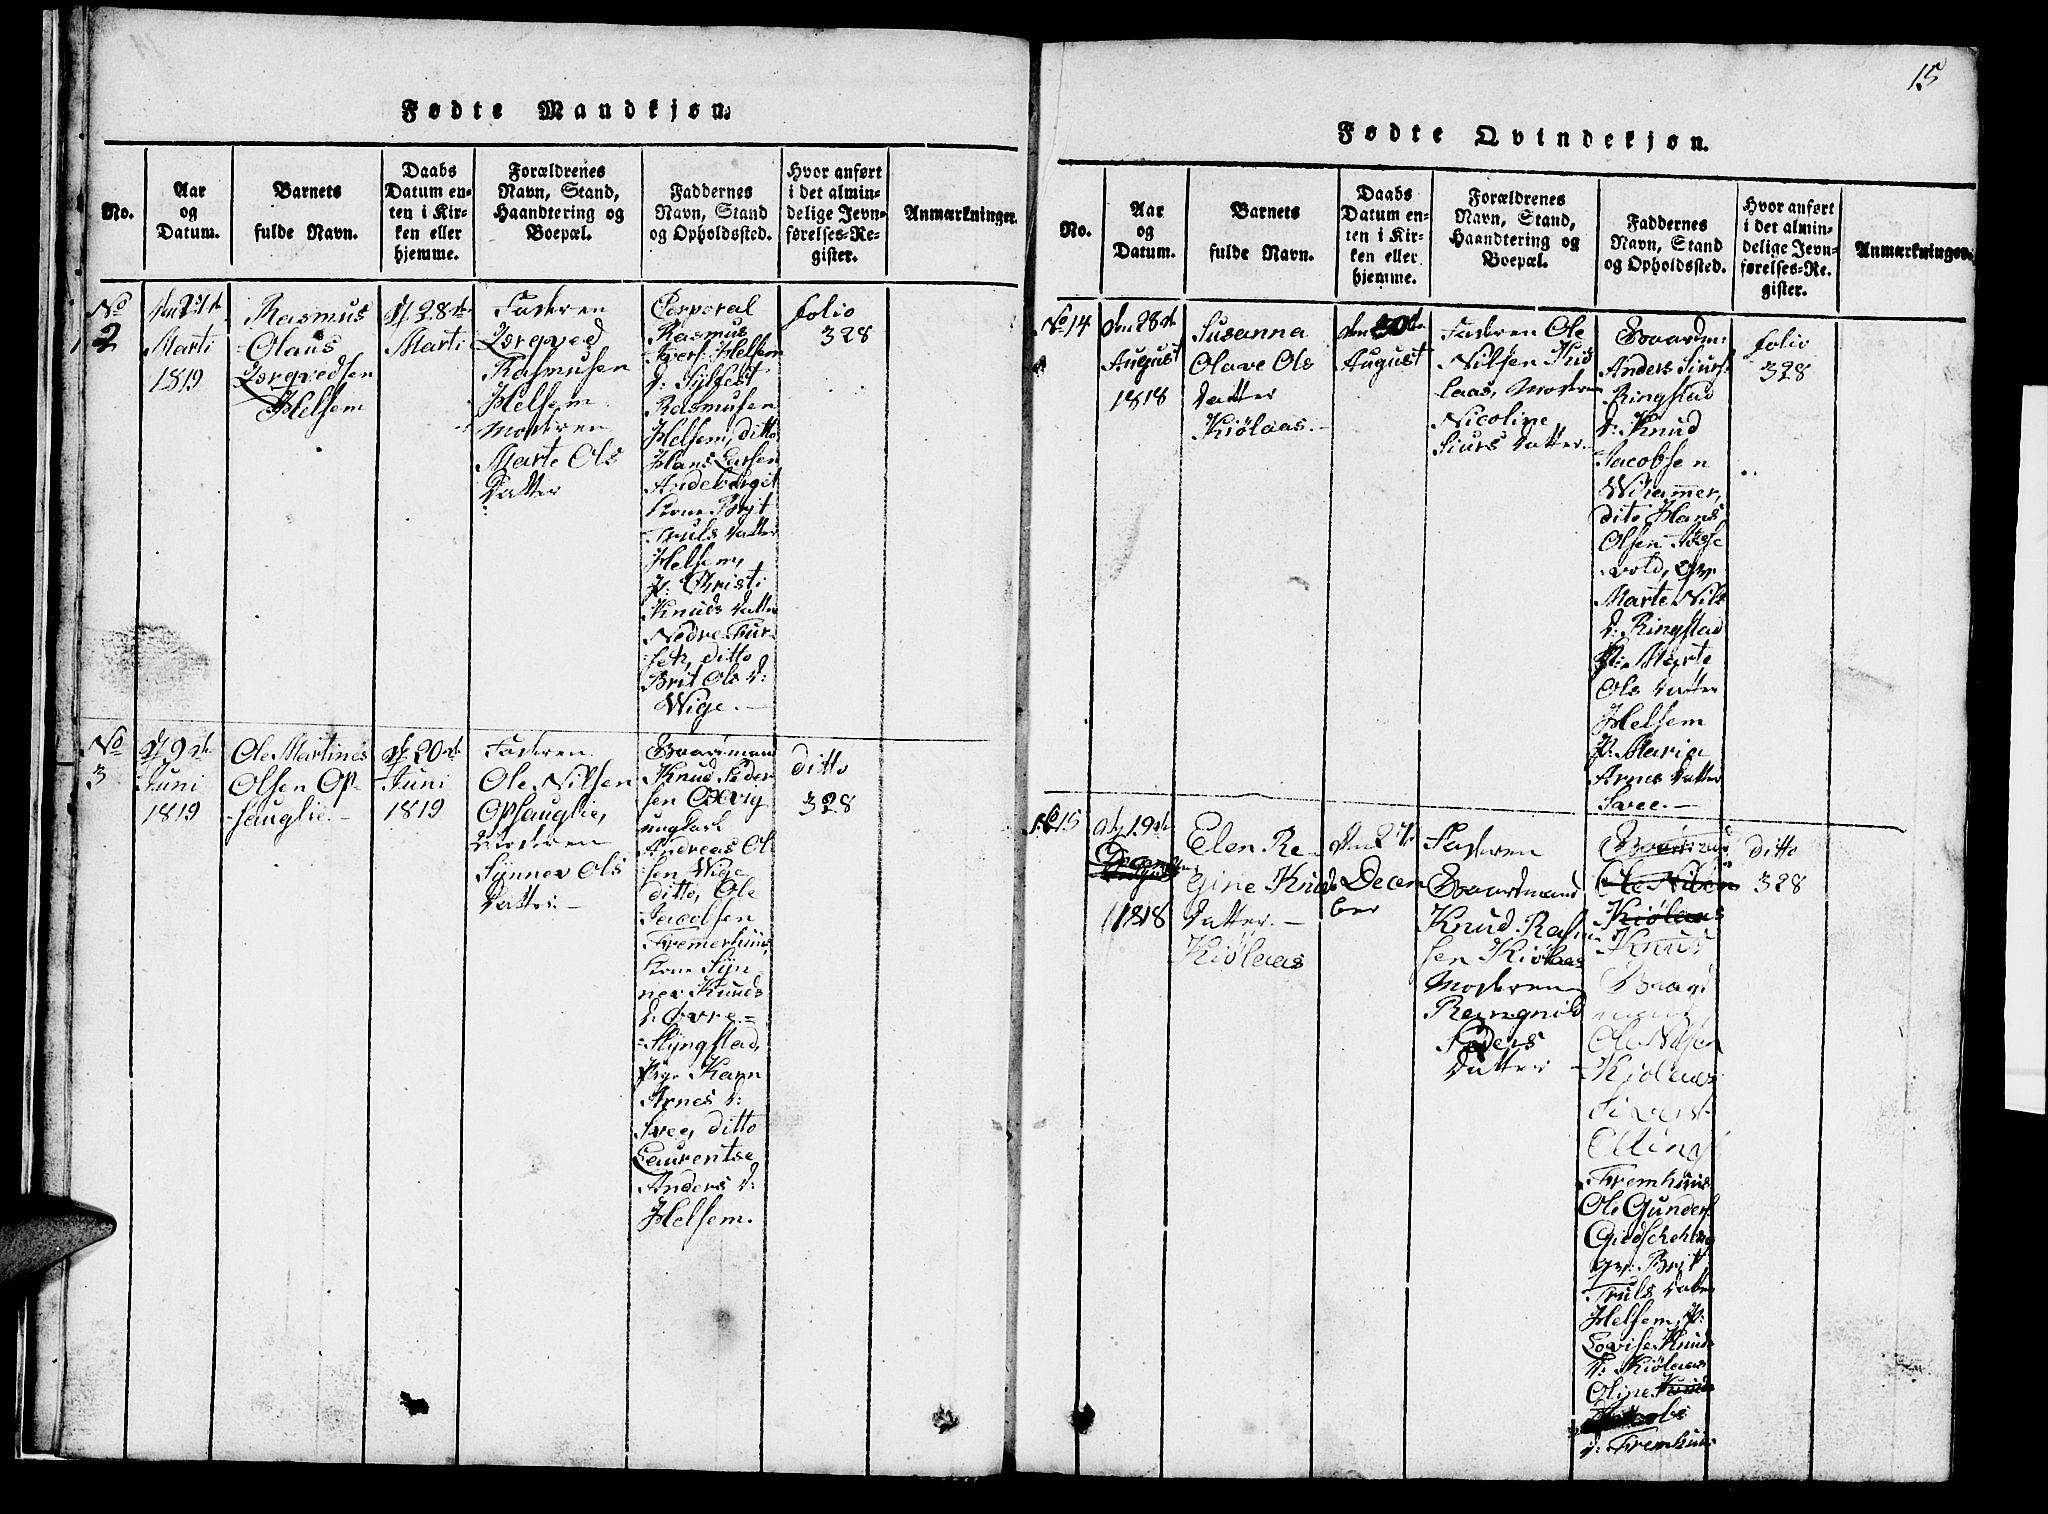 15
Fødte Mandkjøn.
No.
Aar
og
Datum.
Barnets
fulde Navn.
Daabs
Datum en-
ten i Kir-
ken eller
hjemme.
Forældrenes
Navn, Stand,
Haandtering og
Boepæl.
Faddernes
Navn, Stand
og Opholdssted.
Hvor anført
i det almin-
delige Jevn-
førelses-Re-
gister.
Anmærkninger.
No
2
Marti
1819
Rasmus
Olaus
Helsem
28de
Marti
Faderen
Rasmusen
Helsem
Moderen
Marte Ols
Datter
Corporal
Rasmus
Helsem
D: Sylfest
Rasmusen
Helsem, ditto
Hans Larsen
Kone Brit
Truls Datter
Helsem,
P: Christi
Knuds Datter
Nedre Fur-
set, ditto
Brit Ols D:
Wige.
folio
328
No
3
9de
Juni
1819
Ole Martines
Olsen Op-
hauglie.
20de
Juni
1819
Faderen
Ole Nilsen
Ophauglie,
Moderen
Synnev Ols
Datter.
Knud Peder
sen
Andreas Ol
sen Wige
ditto, Ole
Jacobsen
Kone Syn
nev Knuds
D: Øvre-
Slyngstad,
Pige Karn
Arnes D:
Svee, ditto
Laurentse
Anders D:
Helsem.
ditto
328
Fødte Qvindekjøn.
No.
Aar
og
Datum.
Barnets
fulde Navn.
Daabs
Datum en-
ten i Kir-
ken eller
hjemme.
Forældrenes
Navn, Stand,
Haandtering og
Boepæl.
Faddernes
Navn, Stand
og Opholdssted.
Hvor anført
i det almin-
delige Jevn-
førelses-Re-
gister.
Anmærkninger.
No 14
den 28de
August
1818
Susanna
Olave Ols
Datter
Kiølaas.
den 30te
August
Faderen Ole
Nilsen Kiø
laas, Moderen
Nicoline
Siurs Datter.
Anders Siurs
Ringstad
D: Knud
Jacobsen
dito Hans
Olsen
vold,
Marte Nils
D: Ringstad
P: Marte
Ols Datter
Helsem
P: Maria
Arnes Datter
Svee.
folio
328
No 15
19de
December
1818
Elen Re-
gine Knuds
Datter.
Kiølaas
Den 27
Decem
ber
Faderen
Gaardmand
Knud Rasmu
sen Kiølaas
Moderen
Rangnild
Peders
Datter
Ole Nilsen
Kiølaas
Knud
Ole Nilsen
Kiølaas
Elling
Fremhuus
Ole Gunders
Brit
Truls Datter
Helsem, P:
Lovise Knuds
D: Kiølaas
Oline Knuds
D: Fremhuus
ditto
328